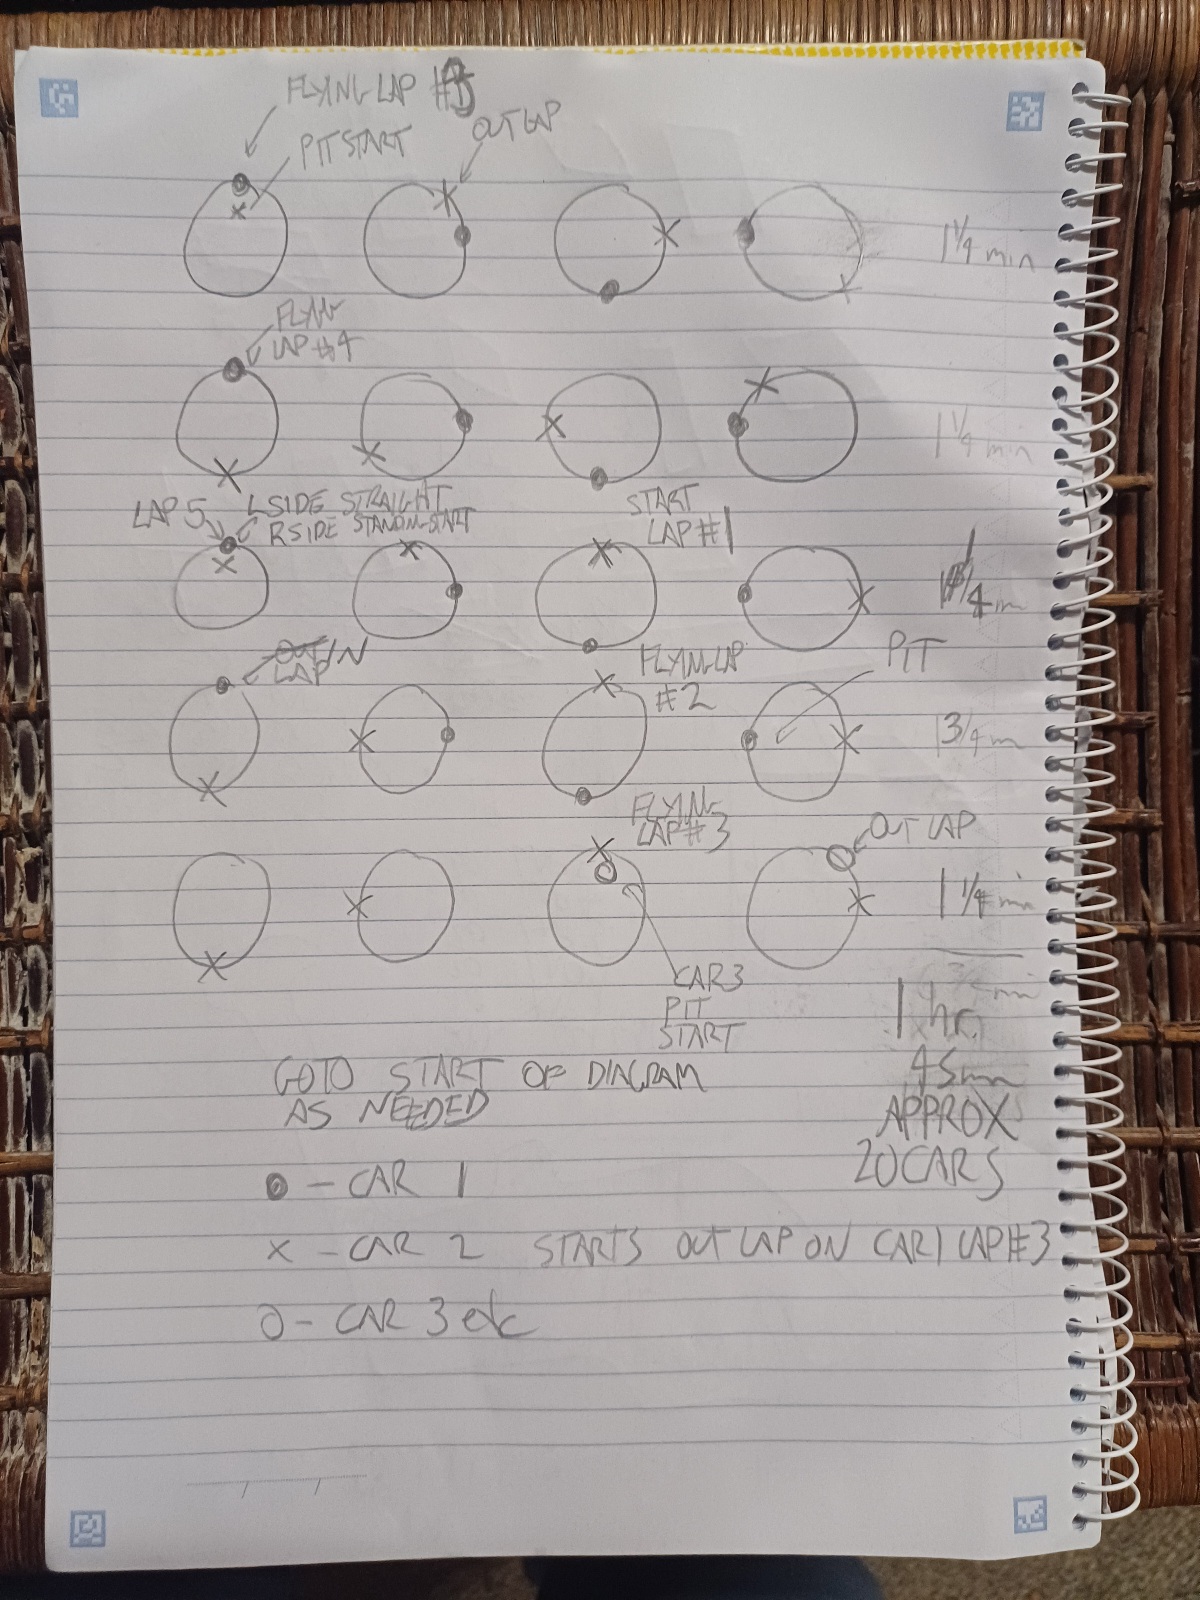 FLYING LAP #3
PIT START
OUT LAP
1 1/4 min
FLYING
LAP #4
1 1/4 min
LAP 5
LSIDE STRAIGHT
RSIDE STANDING START
START
LAP #1
1/4 m
IN
LAP
FLYING LAP
#2
PIT
1 3/4 m
FLYING
LAP #3
OUT LAP
1 1/4 min
CAR 3
PIT
START
1 hr
45 min
APPROX
20 CARS
GOTO START OF DIAGRAM
AS NEEDED
- CAR 1
X - CAR 2 STARTS OUT LAP ON CAR 1 LAP #3
O - CAR 3 etc